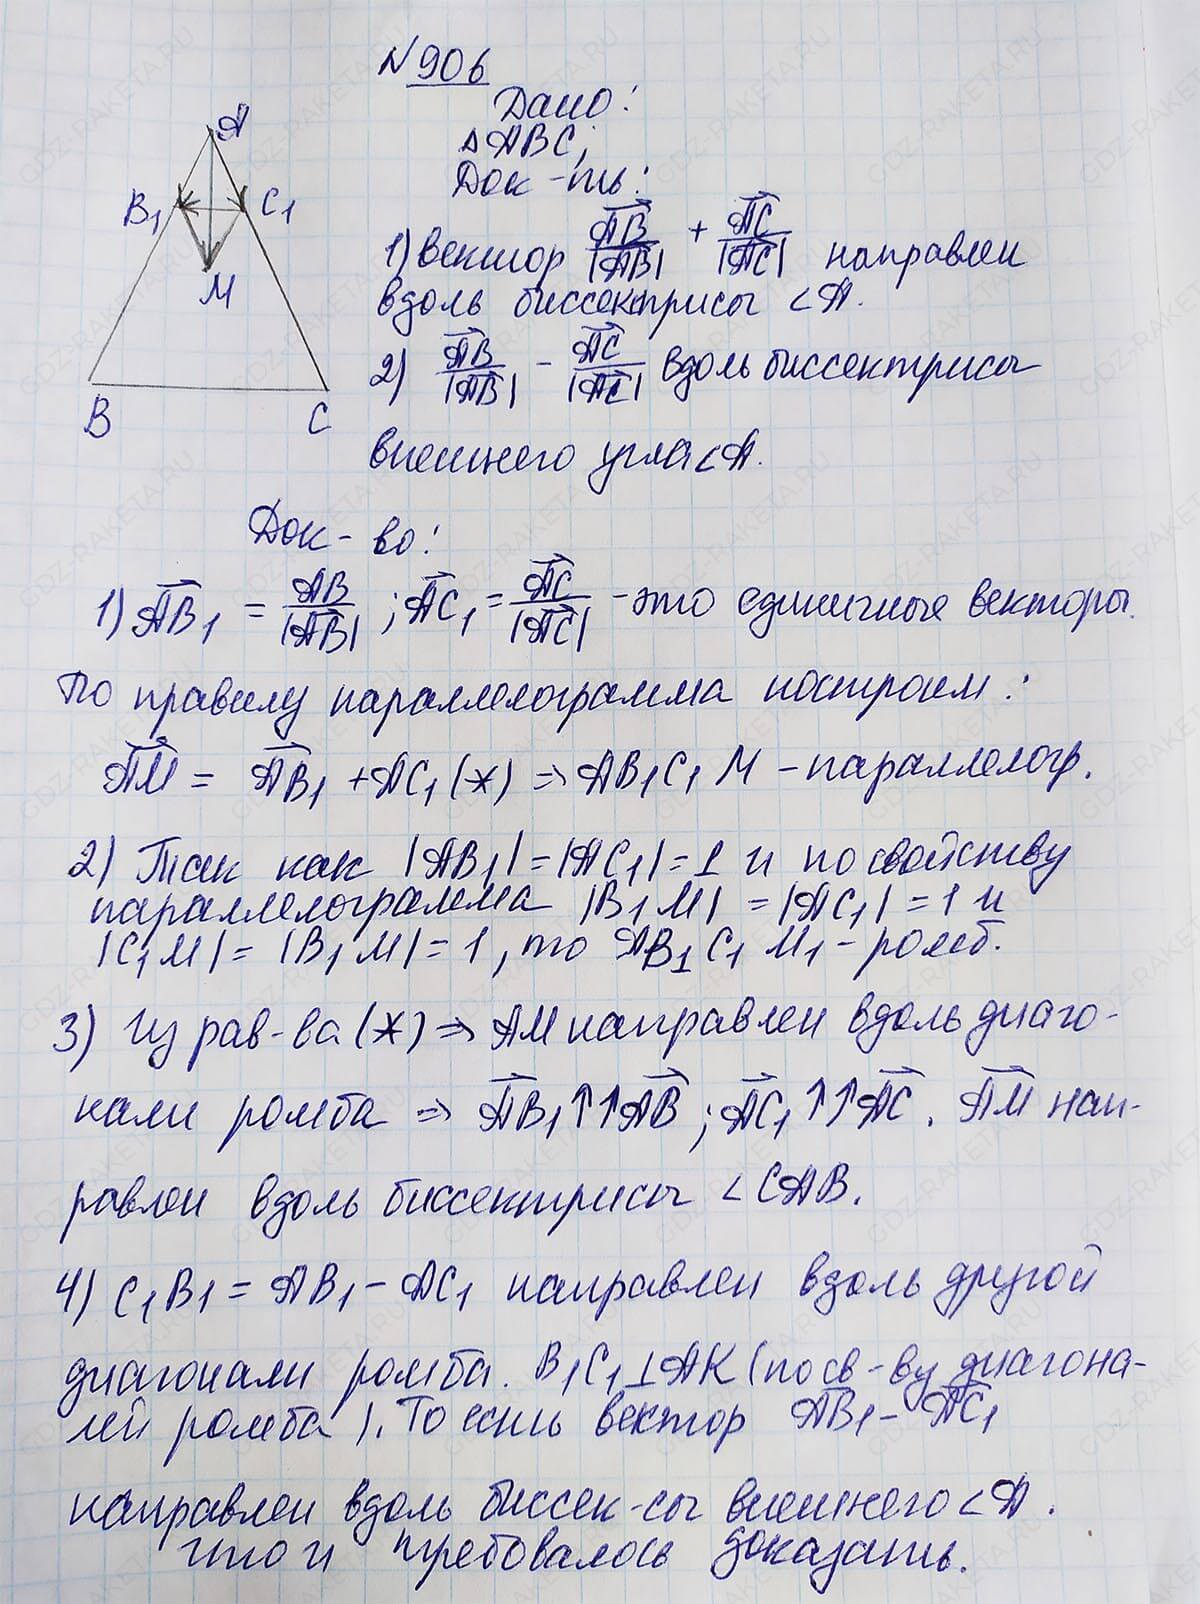 N 906
Дано:
△ABC;
Док-ть:
1) вектор AB/|AB| + AC/|AC| направлен
вдоль биссектрисы ∠A.
2) AB/|AB| - AC/|AC| вдоль биссектрисы
внешнего угла ∠A.
A
B1
C1
M
B
C
Док-во:
1) AB1 = AB/|AB| ; AC1 = AC/|AC| - это единичные векторы.
По правилу параллелограмма построим:
AM = AB1 + AC1 (*) => AB1C1M - параллелогр.
2) Так как |AB1| = |AC1| = 1 и по свойству
параллелограмма |B1M| = |AC1| = 1 и
|C1M| = |B1M| = 1, то AB1C1M1 - ромб.
3) Из рав-ва (*) => AM направлен вдоль диаго-
нали ромба => AB1 ↑↑ AB ; AC1 ↑↑ AC. AM нап-
равлен вдоль биссектрисы ∠CAB.
4) C1B1 = AB1 - AC1 направлен вдоль другой
диагонали ромба. B1C1 ⊥ AK (по св-ву диагона-
лей ромба). То есть вектор AB1 - AC1
направлен вдоль биссек-сы внешнего ∠A.
что и требовалось доказать.
GDZ-RAKETA.RU